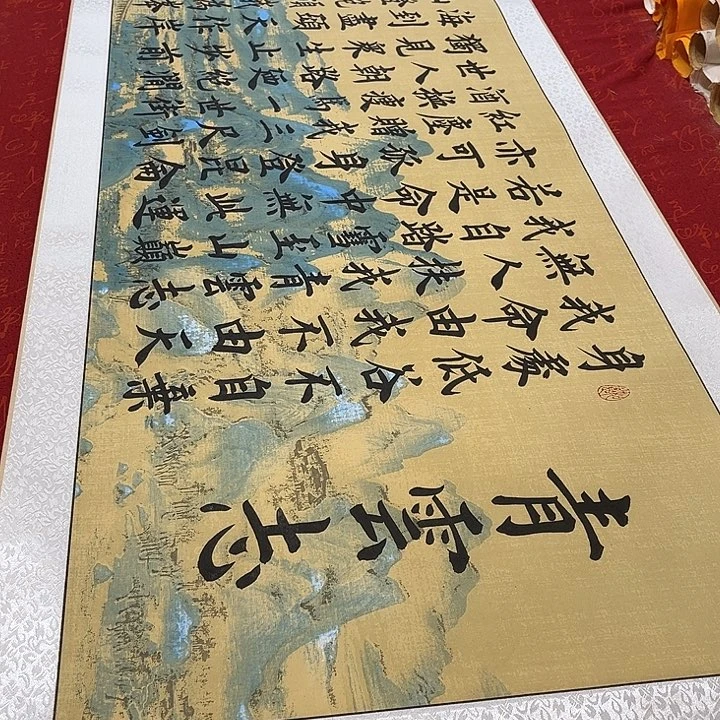 青雲志
身處低谷不自棄
我命由我不由天
無人扶我青雲志
我自踏雪至山巔
若是命中無此運
亦可孤身登昆侖
紅塵贈我三尺劍
酒極瘦馬一世街
世人朝路更絕澗
獨見衆生止步前
海到盡頭天作岸